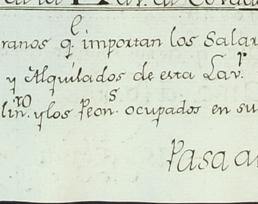 ranos q.^e importan los Salar
y Alquilados de esta Lav.^r
lin.^ro y los Peon.^s ocupados en su
Pasa a